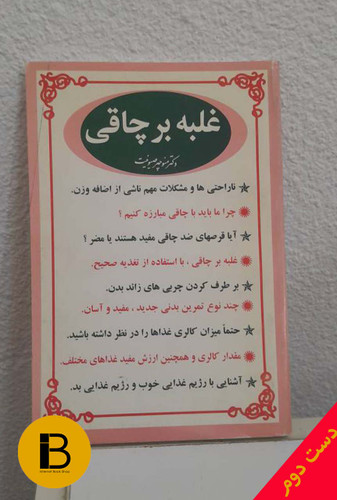 غلبه بر چاقی
دکتر منوچهر
ناراحتی ها و مشکلات مهم ناشی از اضافه وزن.
چرا ما باید با چاقی مبارزه کنیم ؟
آیا قرصهای ضد چاقی مفید هستند یا مضر ؟
غلبه بر چاقی ، با استفاده از تغذیه صحیح.
بر طرف کردن چربی های زائد بدن.
چند نوع تمرین بدنی جدید ، مفید و آسان.
حتماً میزان کالری غذاها را در نظر داشته باشید.
مقدار کالری و همچنین ارزش مفید غذاهای مختلف.
آشنایی با رژیم غذایی خوب و رژیم غذایی بد.
iB
دست دوم